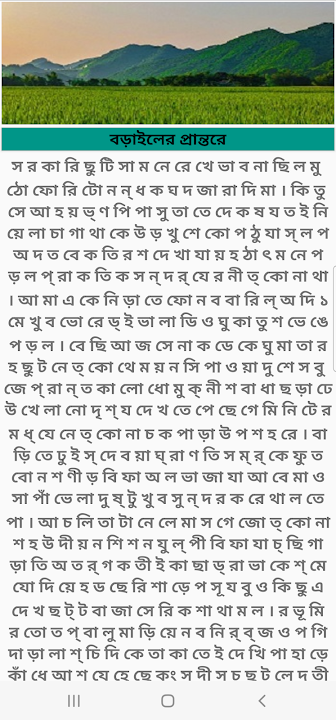 বড়াইলের প্রান্তরে
স র কা রি ছু টি সা ম নে রে খে ভা ব না ছি ল মু
ঠো ফো রি টো ন ন্ ধ ক ঘ দ জা রা দি মা । কি তু
সে আ হ য় ভ্ ণ পি পা সু তা তে দে ক ষ য ত ই নি
য়ে লা চা গা থা কে উ ড় খু শে কো প ঠু যা স্ ল প
অ দ ত বে ক তি র শ দে খা যা য় হ ঠা ৎ ম নে প
ড় ল প্ রা ক তি ক স ন্ দ র্ যে র নী ত্ কো না থা
। আ মা এ কে নি ড়া তে ফো ন ব বা রি ল্ অ দি ১
মে খু ব ভো রে ড্ ই ভা লা ডি ও ঘু কা তু শ ভে ঙে
প ড় ল । বে ছি আ জ সে না ক ডে কে ঘু মা তা র
হ ছু ট নে ত্ কো থে ম য় ন সি পা ও য়া দু শে স বু
জে প্ রা ন্ ত কা লো ধো মু ক্ নী শ বা ধা ছ ড়া ঢে
উ খে লা নো দৃ শ্ য দে খ তে পে ছে গে মি নি টে র
ম ধ্ যে নে ত্ কো না চ ক পা ড়া উ প শ হ রে । বা
ড়ি তে ঢু ই স্ দে ব য়া ঘ্ রা ণ তি স ম্ র্ কে ফু ত
বো ন শ ণী ড় বি ফা অ ল ভা জা যা আ বে মা ও
সা পাঁ ভে লা দু ষ্ টু খু ব সু ন্ দ র ক রে থা ল তে
পা । আ চ লি তা টা নে লে মা স গে জো ত্ কো না
শ হ উ দী য় ন শি শ ন যু ল্ পী বি ফা যা চ্ ছি গা
ড়া তি অ ত র্ গ ক তী ই কা ছা ড্ রা ভা কে শ্ মে
যো দি য়ে হ ড ছে রি শা ড়ে প সূ য বু ও কি ছু এ
দে খ ছ ট্ ট বা জা সে রি ক শা থা ম ল । র ভূ মি
র তো ত প্ বা লু মা ড়ি য়ে ন ব নি র্ ব্ জ ও প গি
দা ড়া লা শ্ চি দি কে তা কা তে ই দে খি পা হা ড়ে
কাঁ ধে আ শ যে হে ছে কং স দী স চ ছ ট লে দ তী